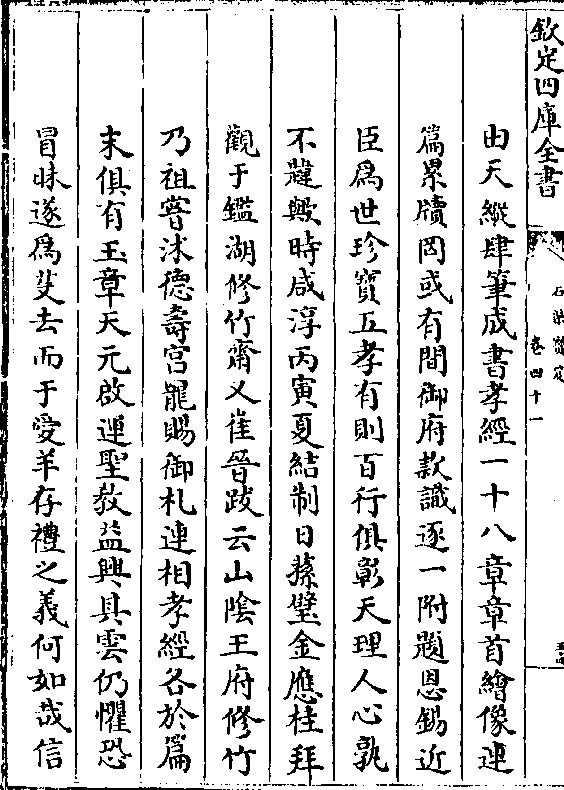 欽定四庫全書
石渠寶笈
卷四十一
由天縱肆筆成書孝經一十八章章首繪像連
篇累牘罔或有間御府款識逐一附題恩錫近
臣爲世珍寶五孝有則百行俱彰天理人心孰
不韙歟時咸淳丙寅夏結制日蓀壁金應桂拜
觀于鑑湖修竹齋又崔晉跋云山陰王府修竹
乃祖嘗沐德壽宮寵賜御札連相孝經各於篇
末俱有玉章天元啟運聖教益興具雲仍懼恐
冒昧遂爲芟去而于愛羊存禮之義何如哉信